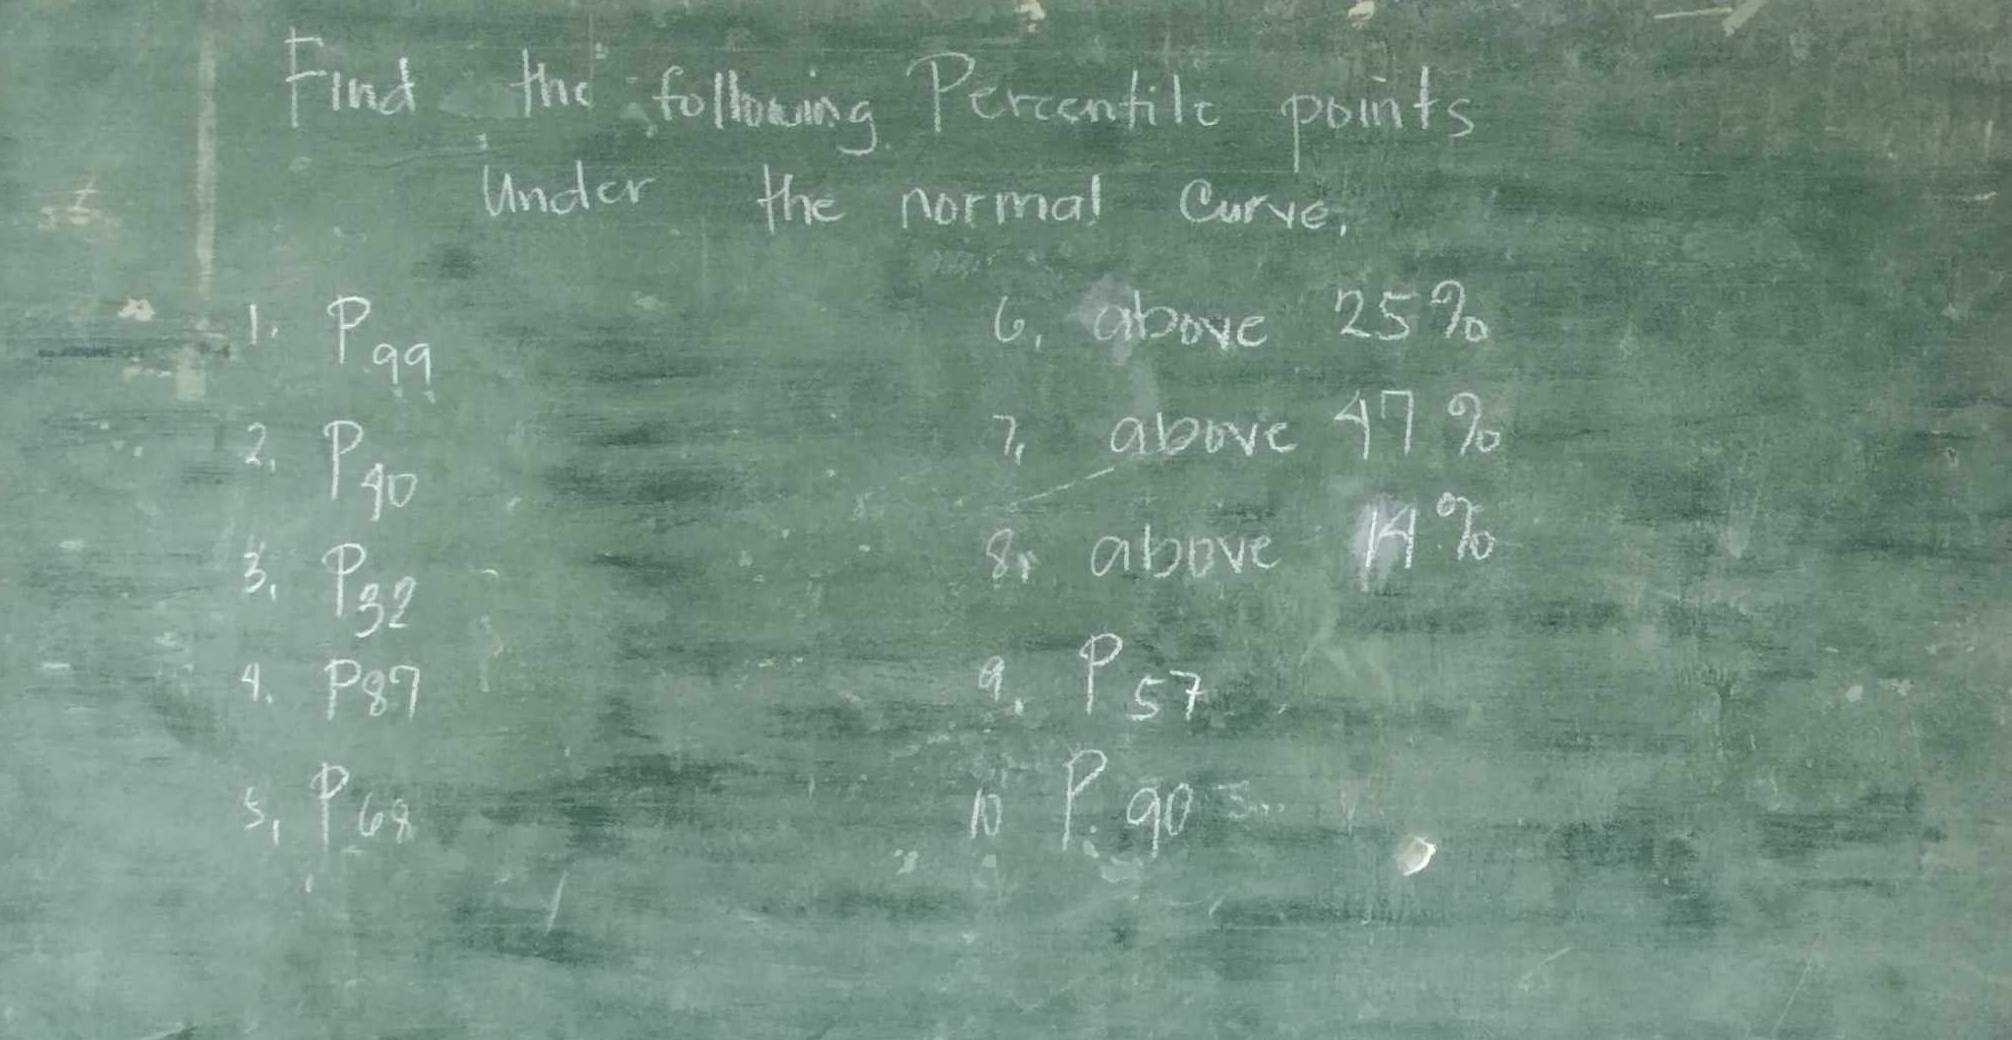 Find the following Percentile points
Under the normal Curve,
1. P99
2. P40
3. P32
4. P87
5. P68
6. above 25%
7. above 47%
8. above 14%
9. P57
10 P90